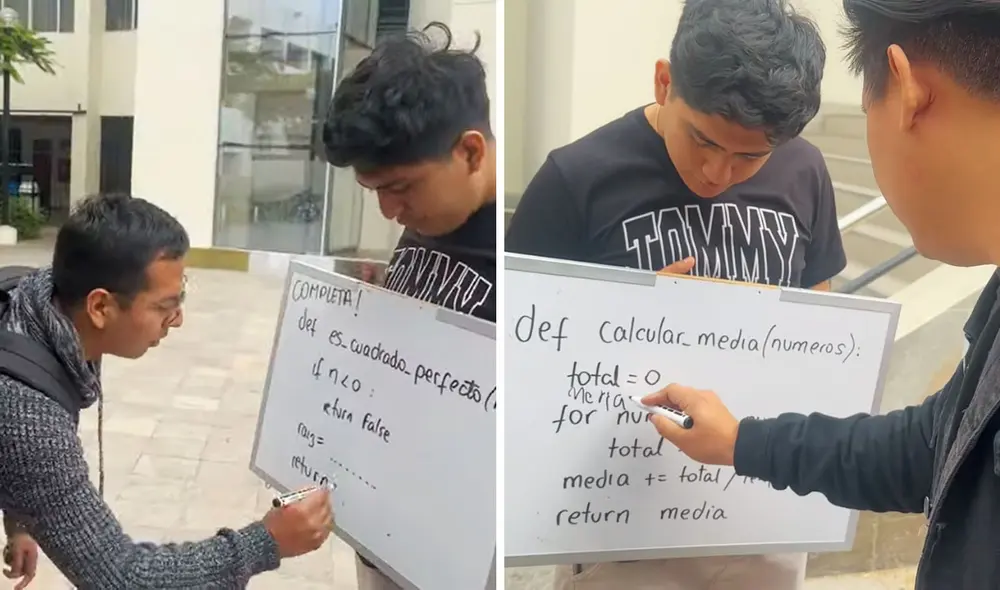 COMPLETA!
def es_cuadrado_perfecto(
if n<0:
return False
raiz=
return
TOMMY
TOMMY
def calcular_media(numeros):
total = 0
media
for
total
media += total /
return media